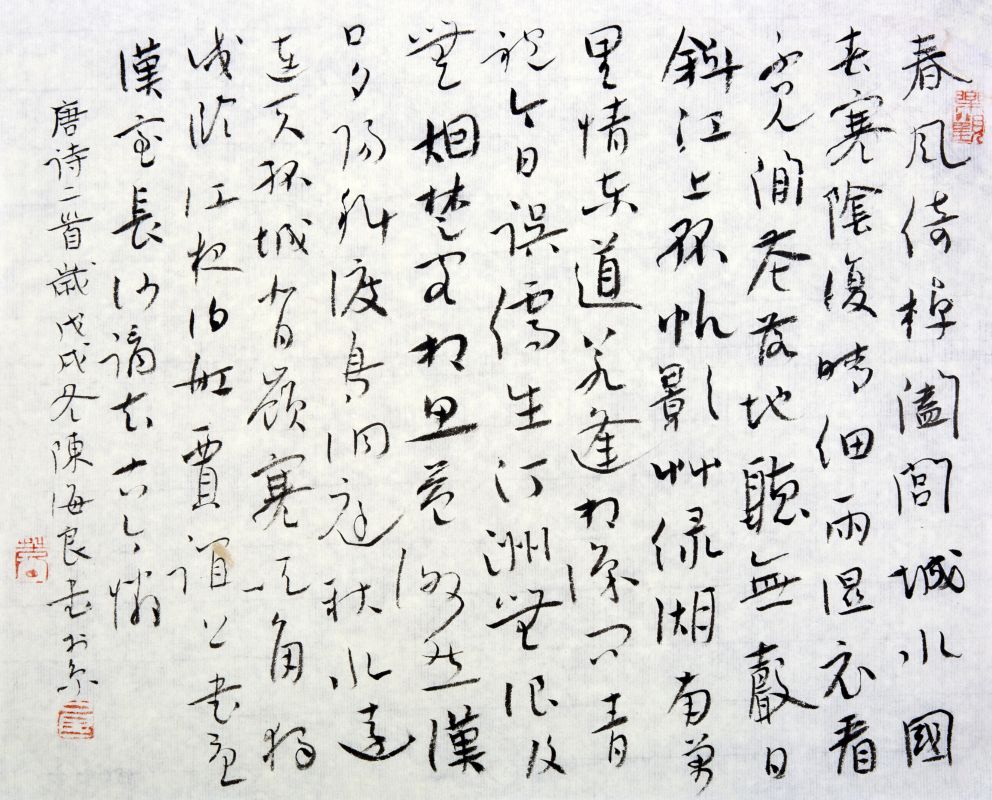 春風倚棹闔閭城水國
春寒陰復晴細雨溼衣看
不見閒花落地聽無聲日
斜江上孤帆影艸綠湖南萬
里情東道若逢相識問青
袍今日誤儒生汀洲無浪復
無烟楚客相思益渺然漢
口夕陽斜渡鳥洞庭秋水遠
連天孤城背嶺寒吹角獨
戍臨江夜泊船賈誼上書憂
漢室長沙謫去古今憐
唐詩二首歲戊戌冬陳海良書於京